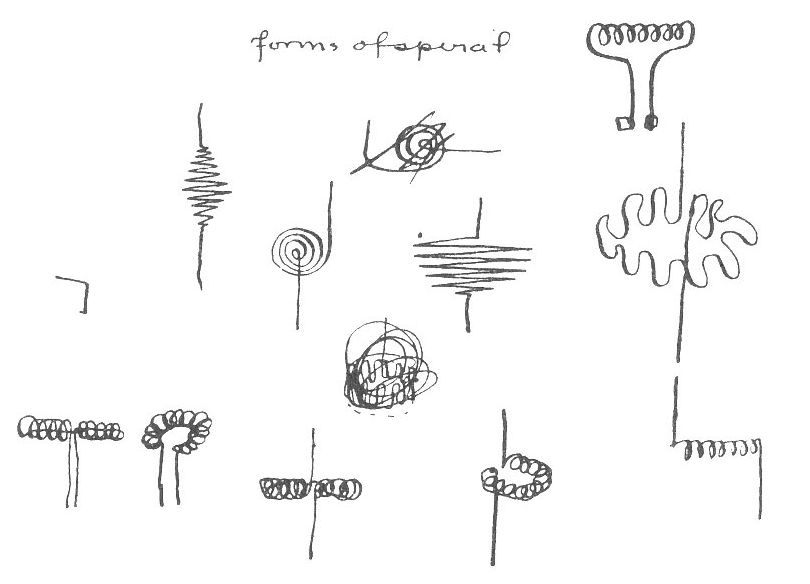 forms of spiral